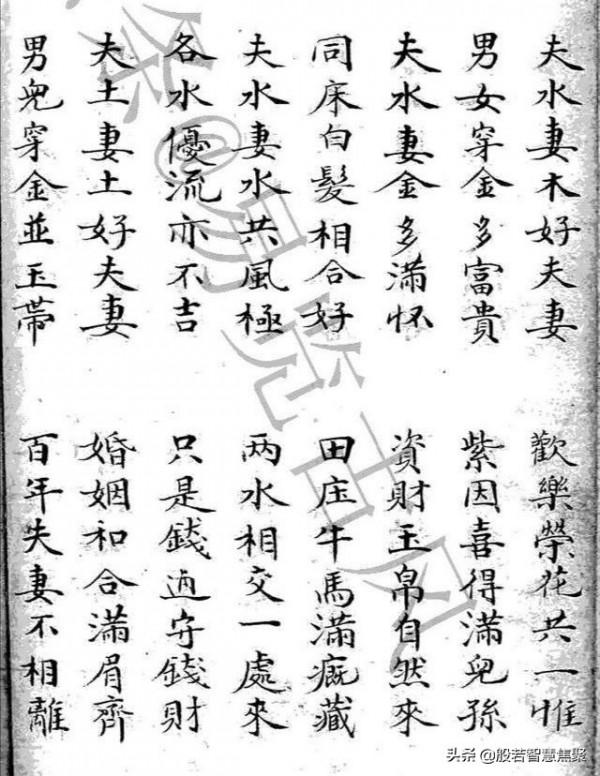 夫水妻木好夫妻 歡樂榮花共一惟
男女穿金多富貴 紫因喜得滿兒孫
夫水妻金多滿怀 資財玉帛自然來
同床白髮相合好 田庄牛馬滿藏
夫水妻水共風極 两水相交一處來
各水優流亦不吉 只是錢守錢財
夫土妻土好夫妻 婚姻和合滿眉齊
男兒穿金並玉帶 百年失妻不相離
头条 @般若智慧焦聚